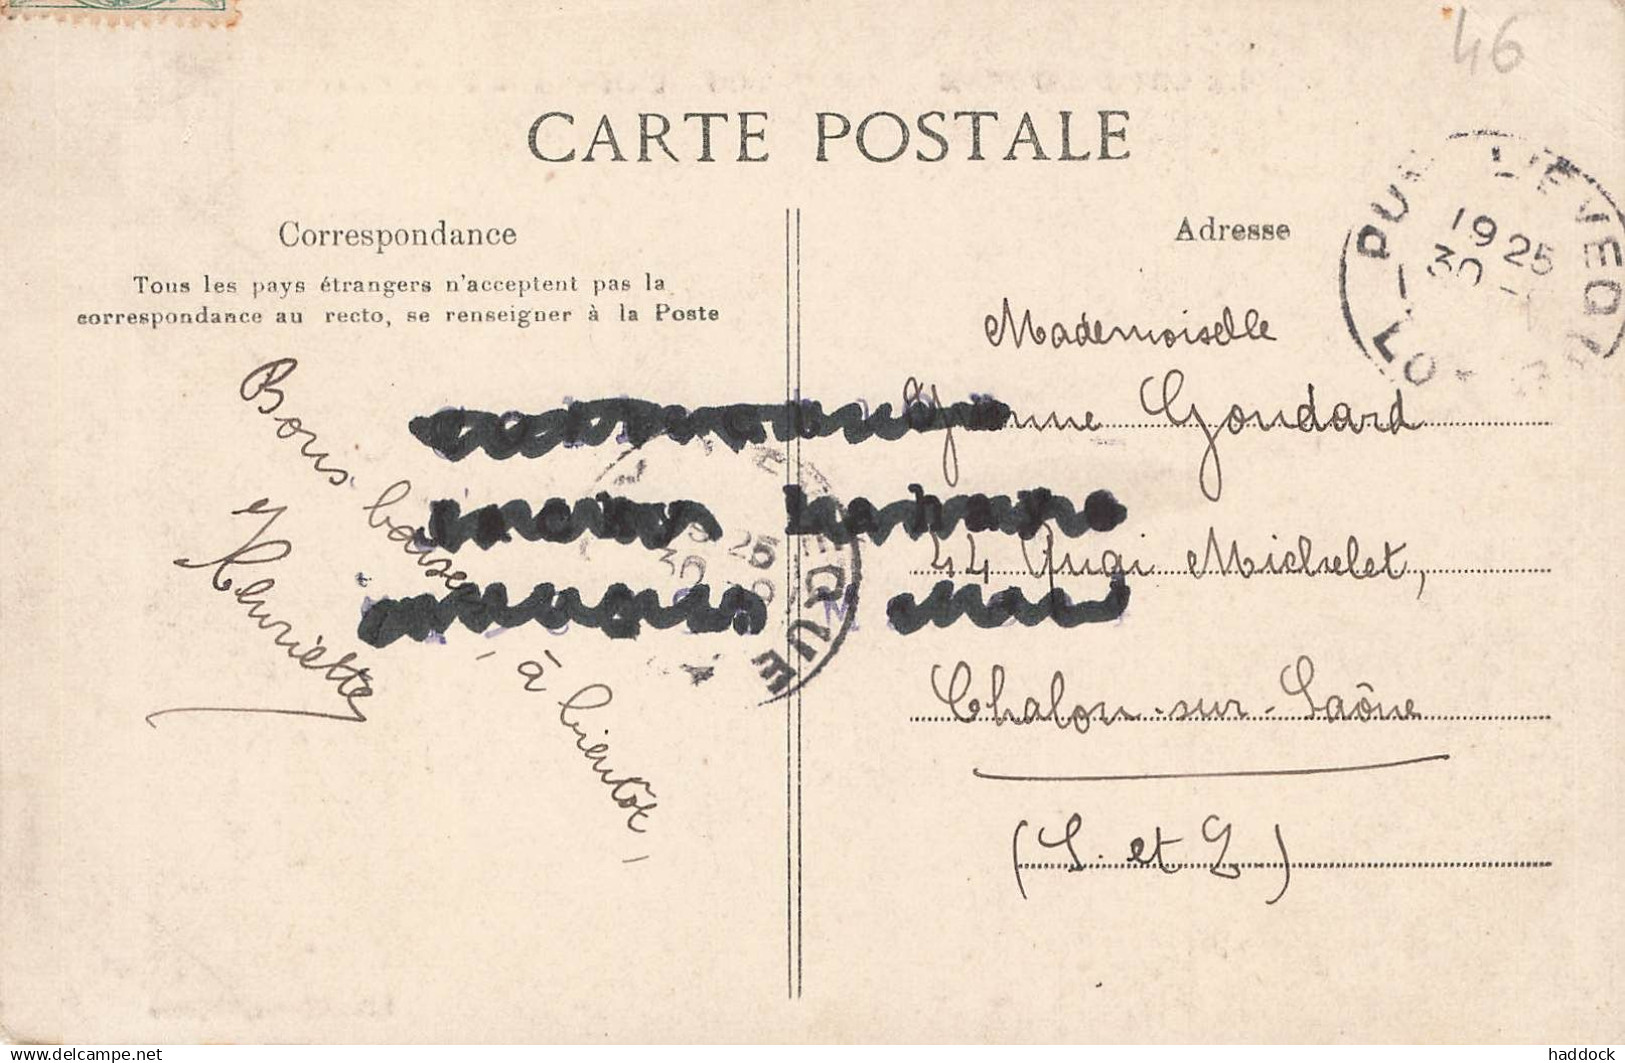 46
CARTE POSTALE
Correspondance
Adresse
Tous les pays étrangers n'acceptent pas la
correspondance au recto, se renseigner à la Poste
Bons baisers, à bientôt,
Henriette
Mademoiselle
Yvonne Goudard
44 Quai Michelet,
Chalon-sur-Saône
(S. et L)
PUY L'EVEQUE
19 25
30
LOT
25
30
EQUE
www.delcampe.net
haddock